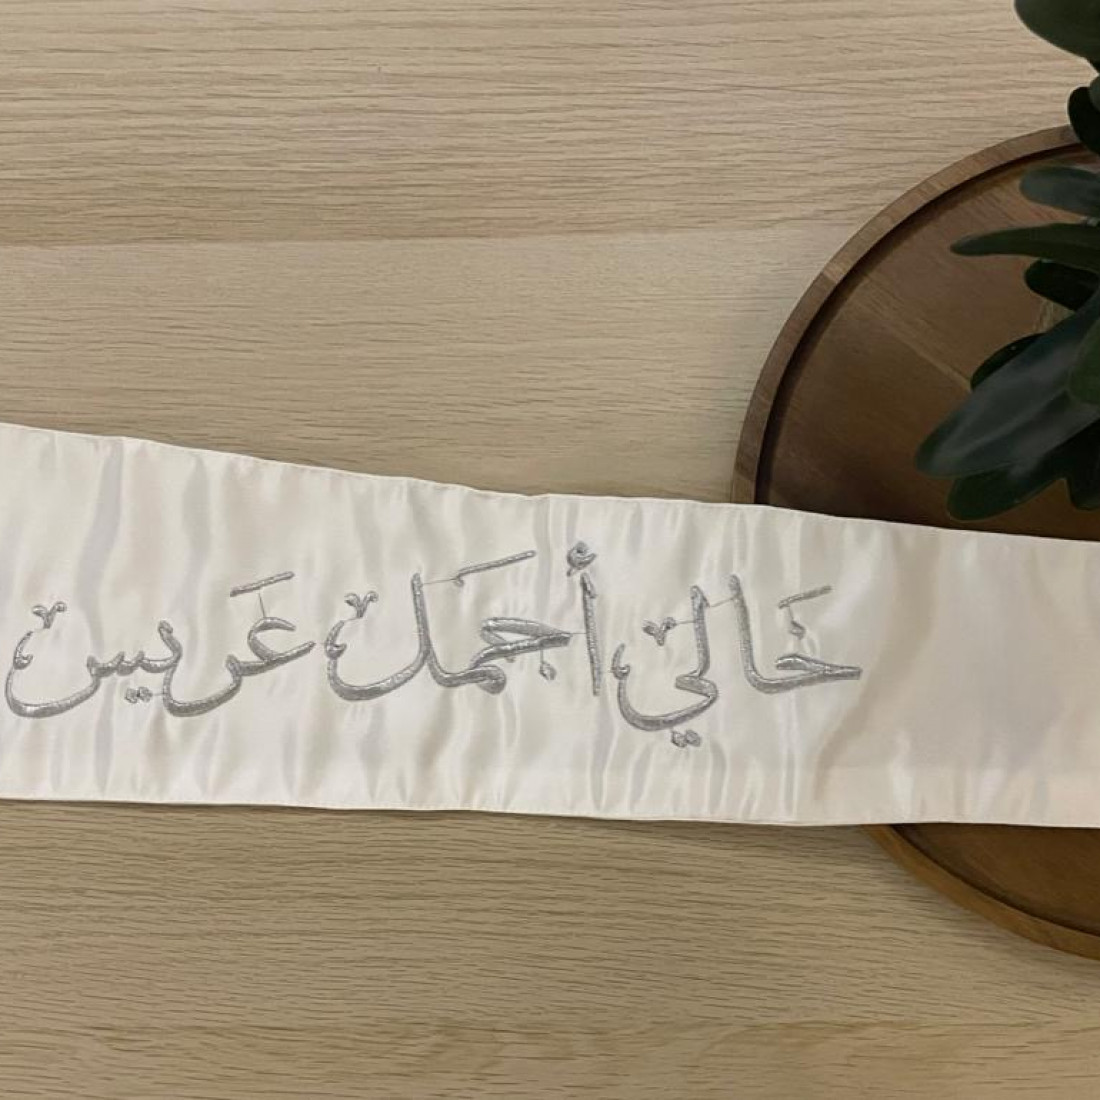 خَالي أجمَل عَريس